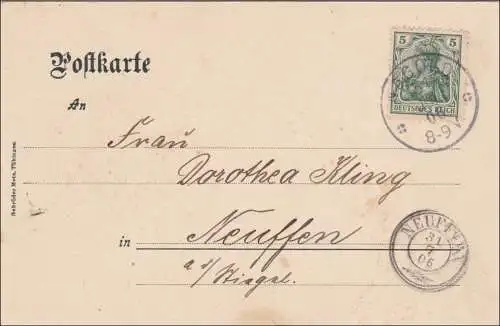 Postkarte
5
DEUTSCHES REICH
06
8-9 V.
An
Frau
Dorothea Kling
in Neuffen
NEUFFEN
31
7
06
Gebrüder Metz, Tübingen.